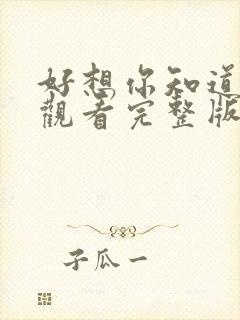 好想你知道
觀看完整版
子瓜一